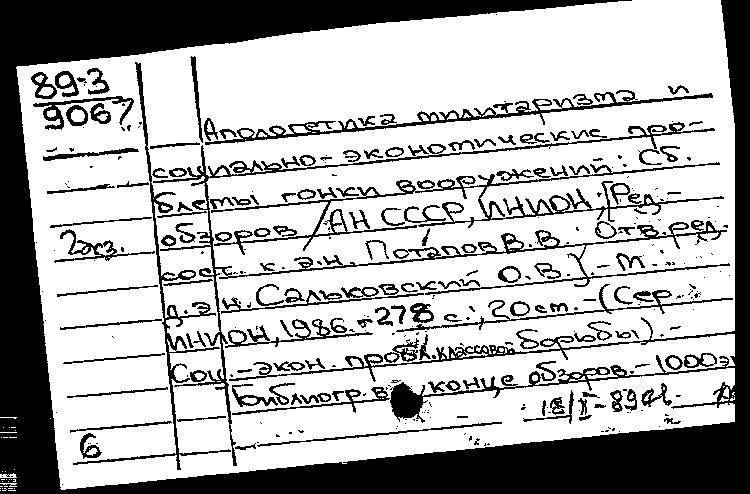 89-3
9067
Апологетика милитаризма и
социально-экономические про-
блемы гонки вооружений: Сб.
2экз.
обзоров / АН СССР, ИНИОН; [Ред.-
сост. к. э.н. Потапов В.В. Отв. ред.
д. э. н. Сальковский О.В.]. - М.:
ИНИОН, 1986. - 278 с.; 20 см. - (Сер.
Соц.-экон. пробл. классовой борьбы). -
Библиогр. в конце обзоров. - 1000 э
6